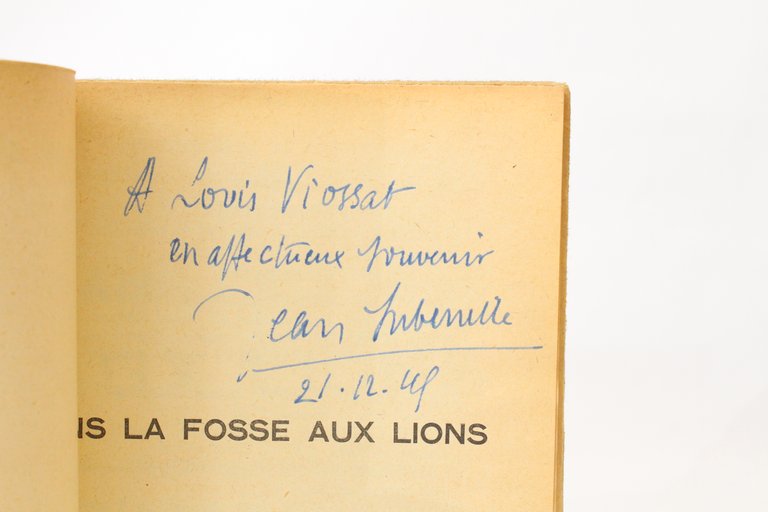 A Louis Viossat
en affectueux souvenir
Jean
21.12.45
NS LA FOSSE AUX LIONS